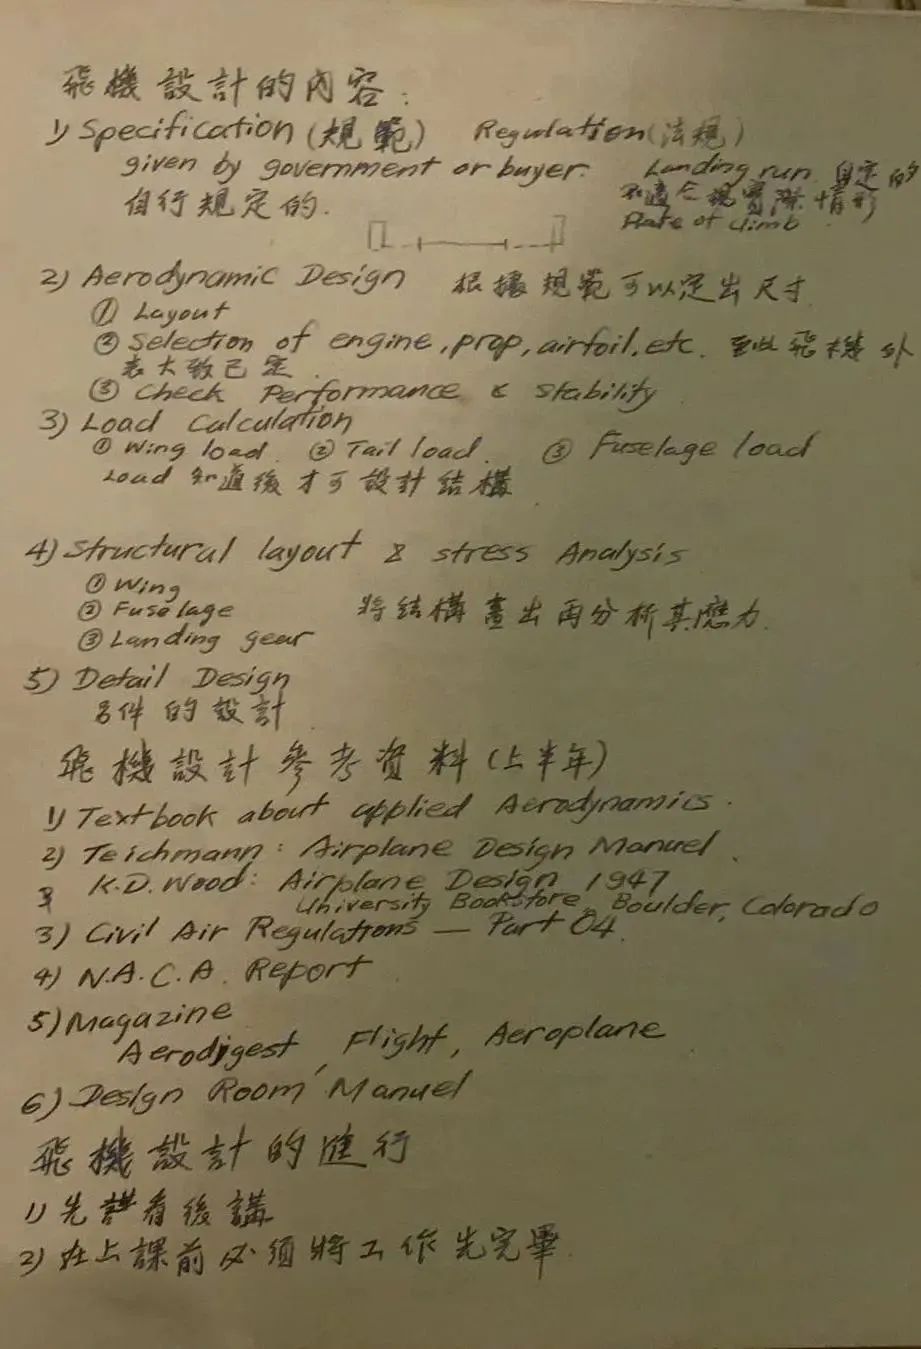 飛機設計的內容:
1) Specification (規範) Regulation (法規)
given by government or buyer. Landing run 自定的
自行規定的. 不適合現實際情形
Rate of climb
2) Aerodynamic Design 根據規範可以定出尺寸.
① Layout
② Selection of engine, prop, airfoil, etc. 至此飛機外
表大致已定.
③ Check Performance & Stability
3) Load Calculation
① Wing load. ② Tail load. ③ Fuselage load
Load 知道後才可設計結構
4) Structural layout & stress Analysis
① Wing
② Fuselage 將結構畫出再分析其應力.
③ Landing gear
5) Detail Design
各件的設計.
飛機設計參考資料 (上半年)
1) Textbook about applied Aerodynamics.
2) Teichmann: Airplane Design Manuel.
K.D. Wood: Airplane Design 1947
University Bookstore, Boulder, Colorado
3) Civil Air Regulations — Part 04.
4) N.A.C.A. Report
5) Magazine
Aerodigest, Flight, Aeroplane
6) Design Room Manuel
飛機設計的進行
1) 先看後講
2) 在上課前必須將工作先完畢.